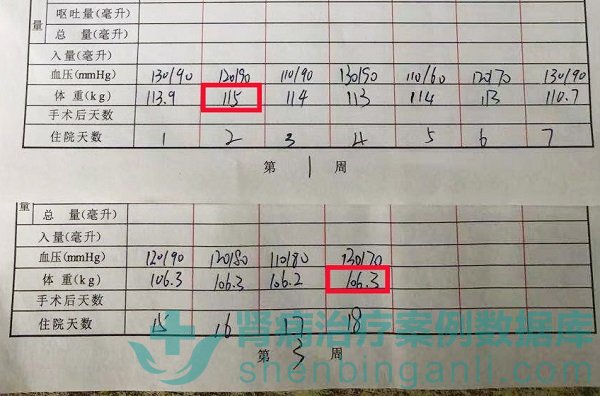 呕吐量(毫升)
量 总 量(毫升)
入量(毫升)
血压(mmHg) 130/90 120/90 110/90 130/90 110/60 120/70 130/90
体 重(kg) 113.9 115 114 113 114 113 110.7
手术后天数
住院天数 1 2 3 4 5 6 7
第 1 周
量 总 量(毫升)
入量(毫升)
血压(mmHg) 120/90 120/80 110/80 130/70
体 重(kg) 106.3 106.3 106.2 106.3
手术后天数
住院天数 15 16 17 18
第 3 周
肾病治疗案例数据库
shenbinganli.com